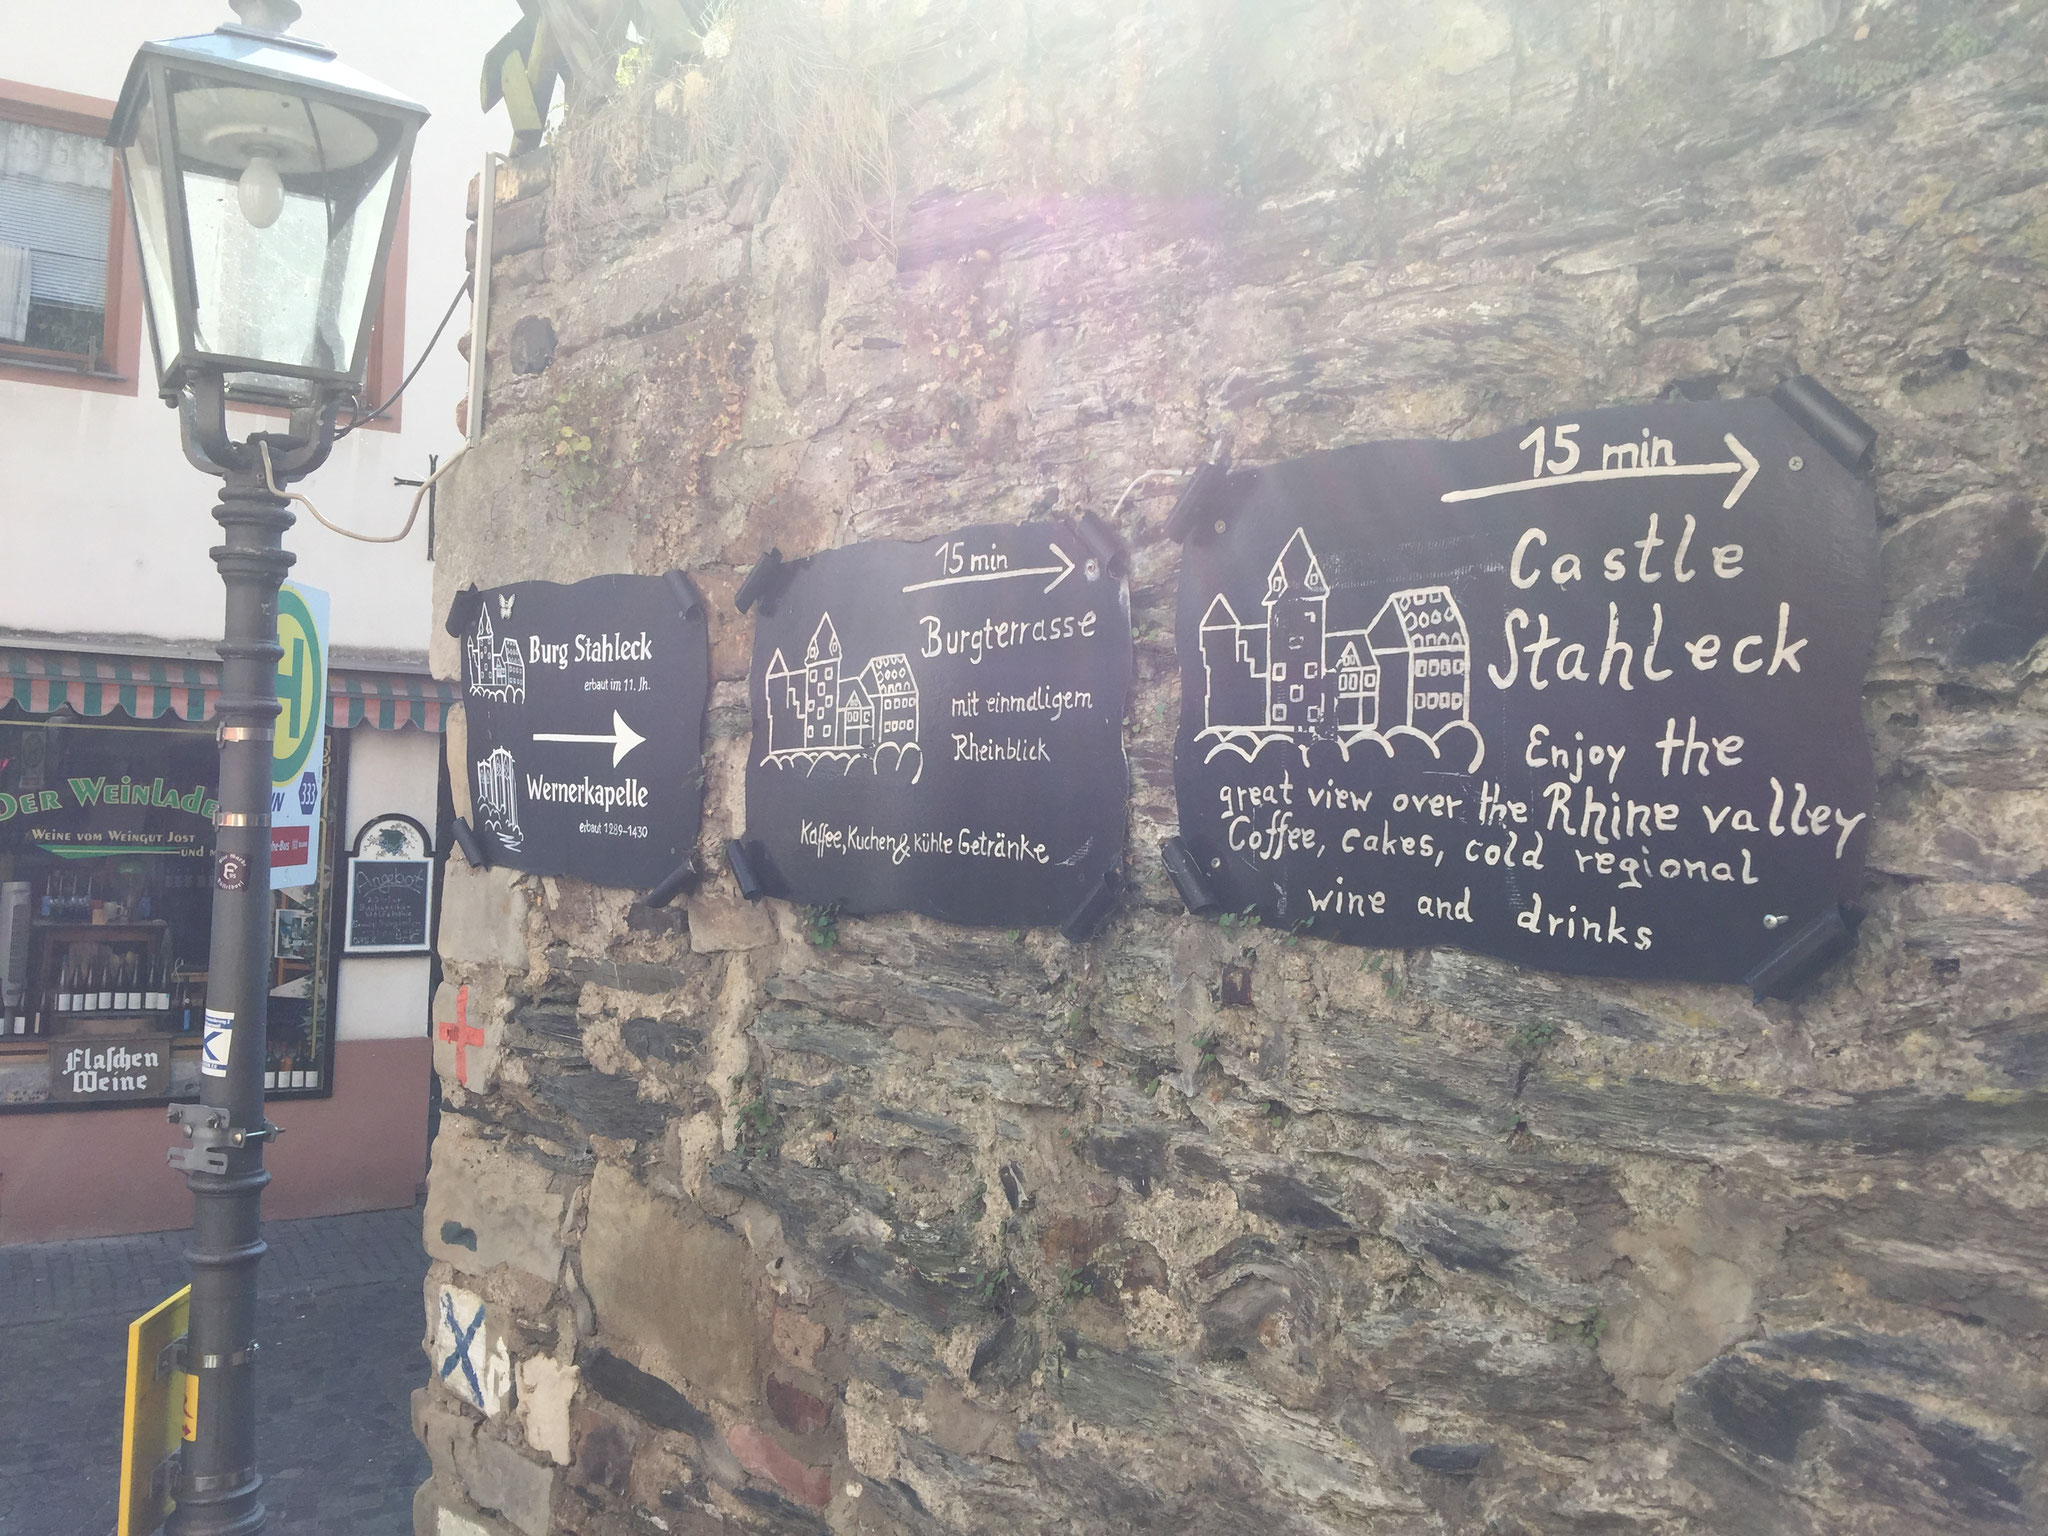 Burg Stahleck
erbaut im 11. Jh.
Wernerkapelle
erbaut 1289-1430
15 min
Burgterrasse
mit einmaligem
Rheinblick
Kaffee, Kuchen & kühle Getränke
15 min
Castle
Stahleck
Enjoy the
great view over the Rhine valley
Coffee, cakes, cold regional
wine and drinks
H
333
DER WEINLADE
WEINE VOM WEINGUT JOST
Angebot
Flaschen
Weine
K
X